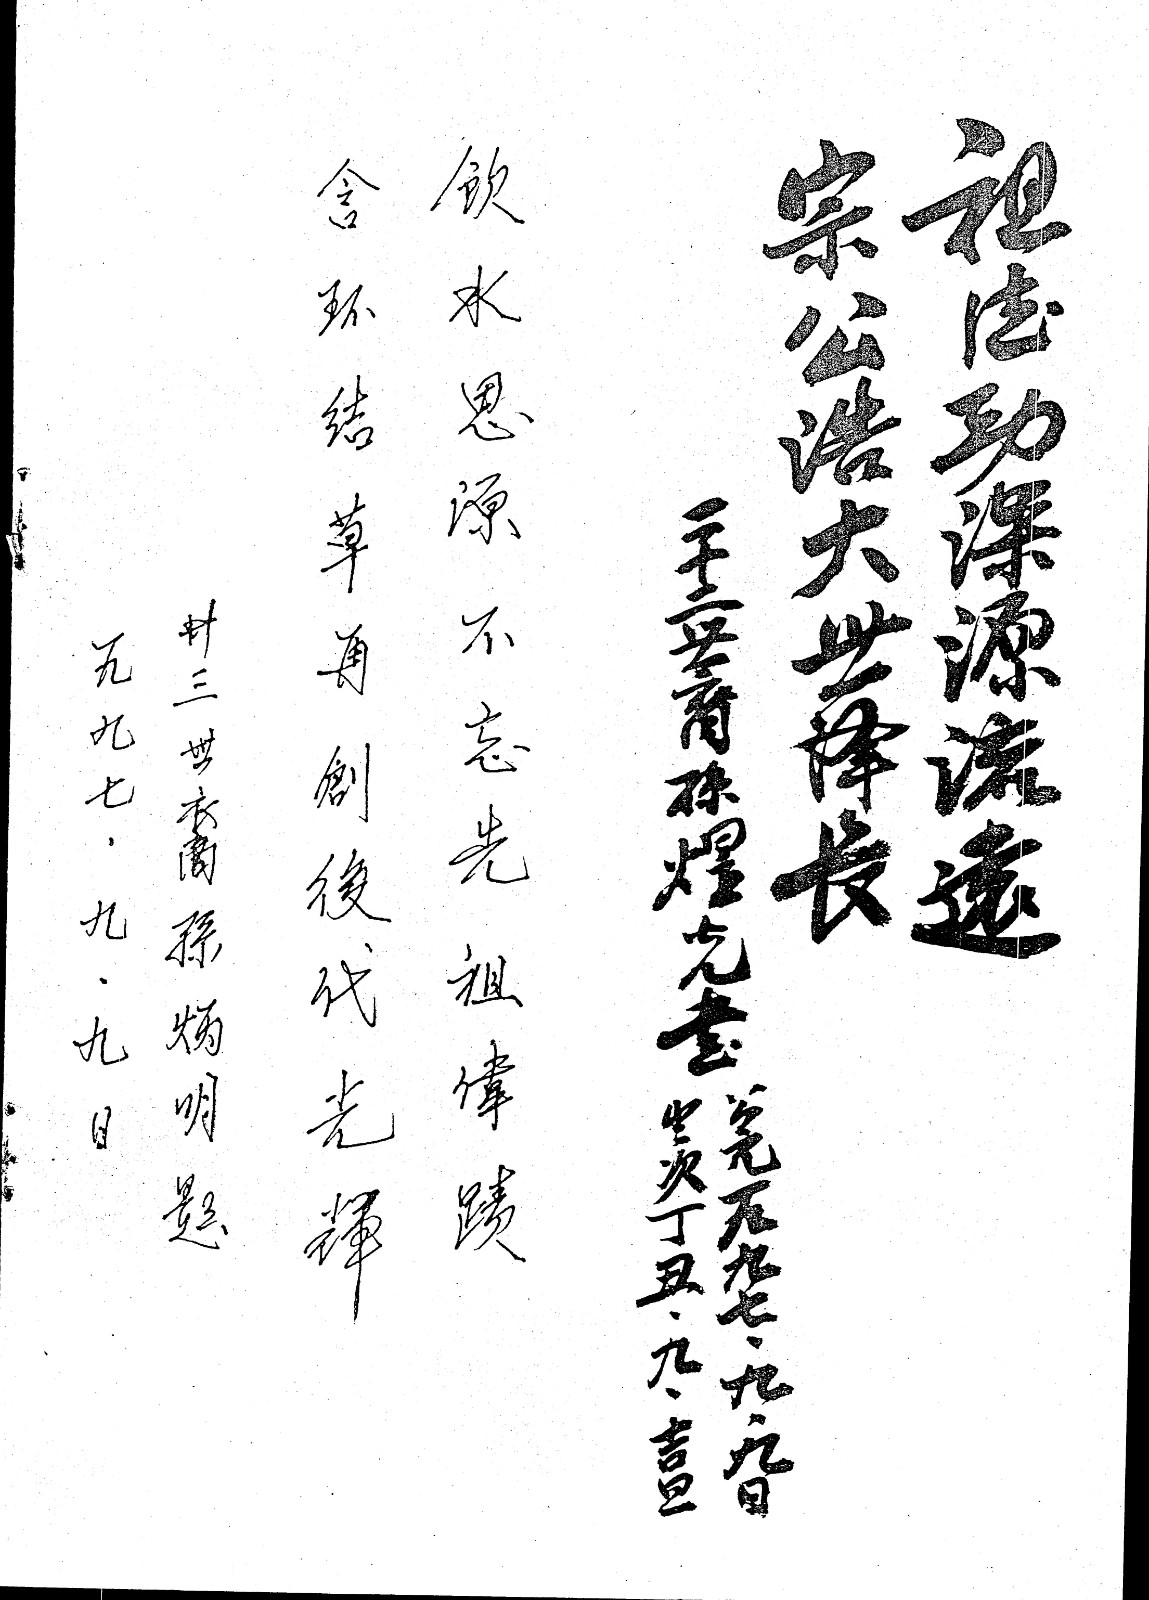 祖德功深源流遠
宗公浩大世泽長
二十三世裔孫煜光書
公元一九九七·九·九日
歲次丁丑·九·吉旦
飲水思源不忘先祖偉蹟
含环结草再創後代光輝
卅三世裔孫炳明題
一九九七·九·九日